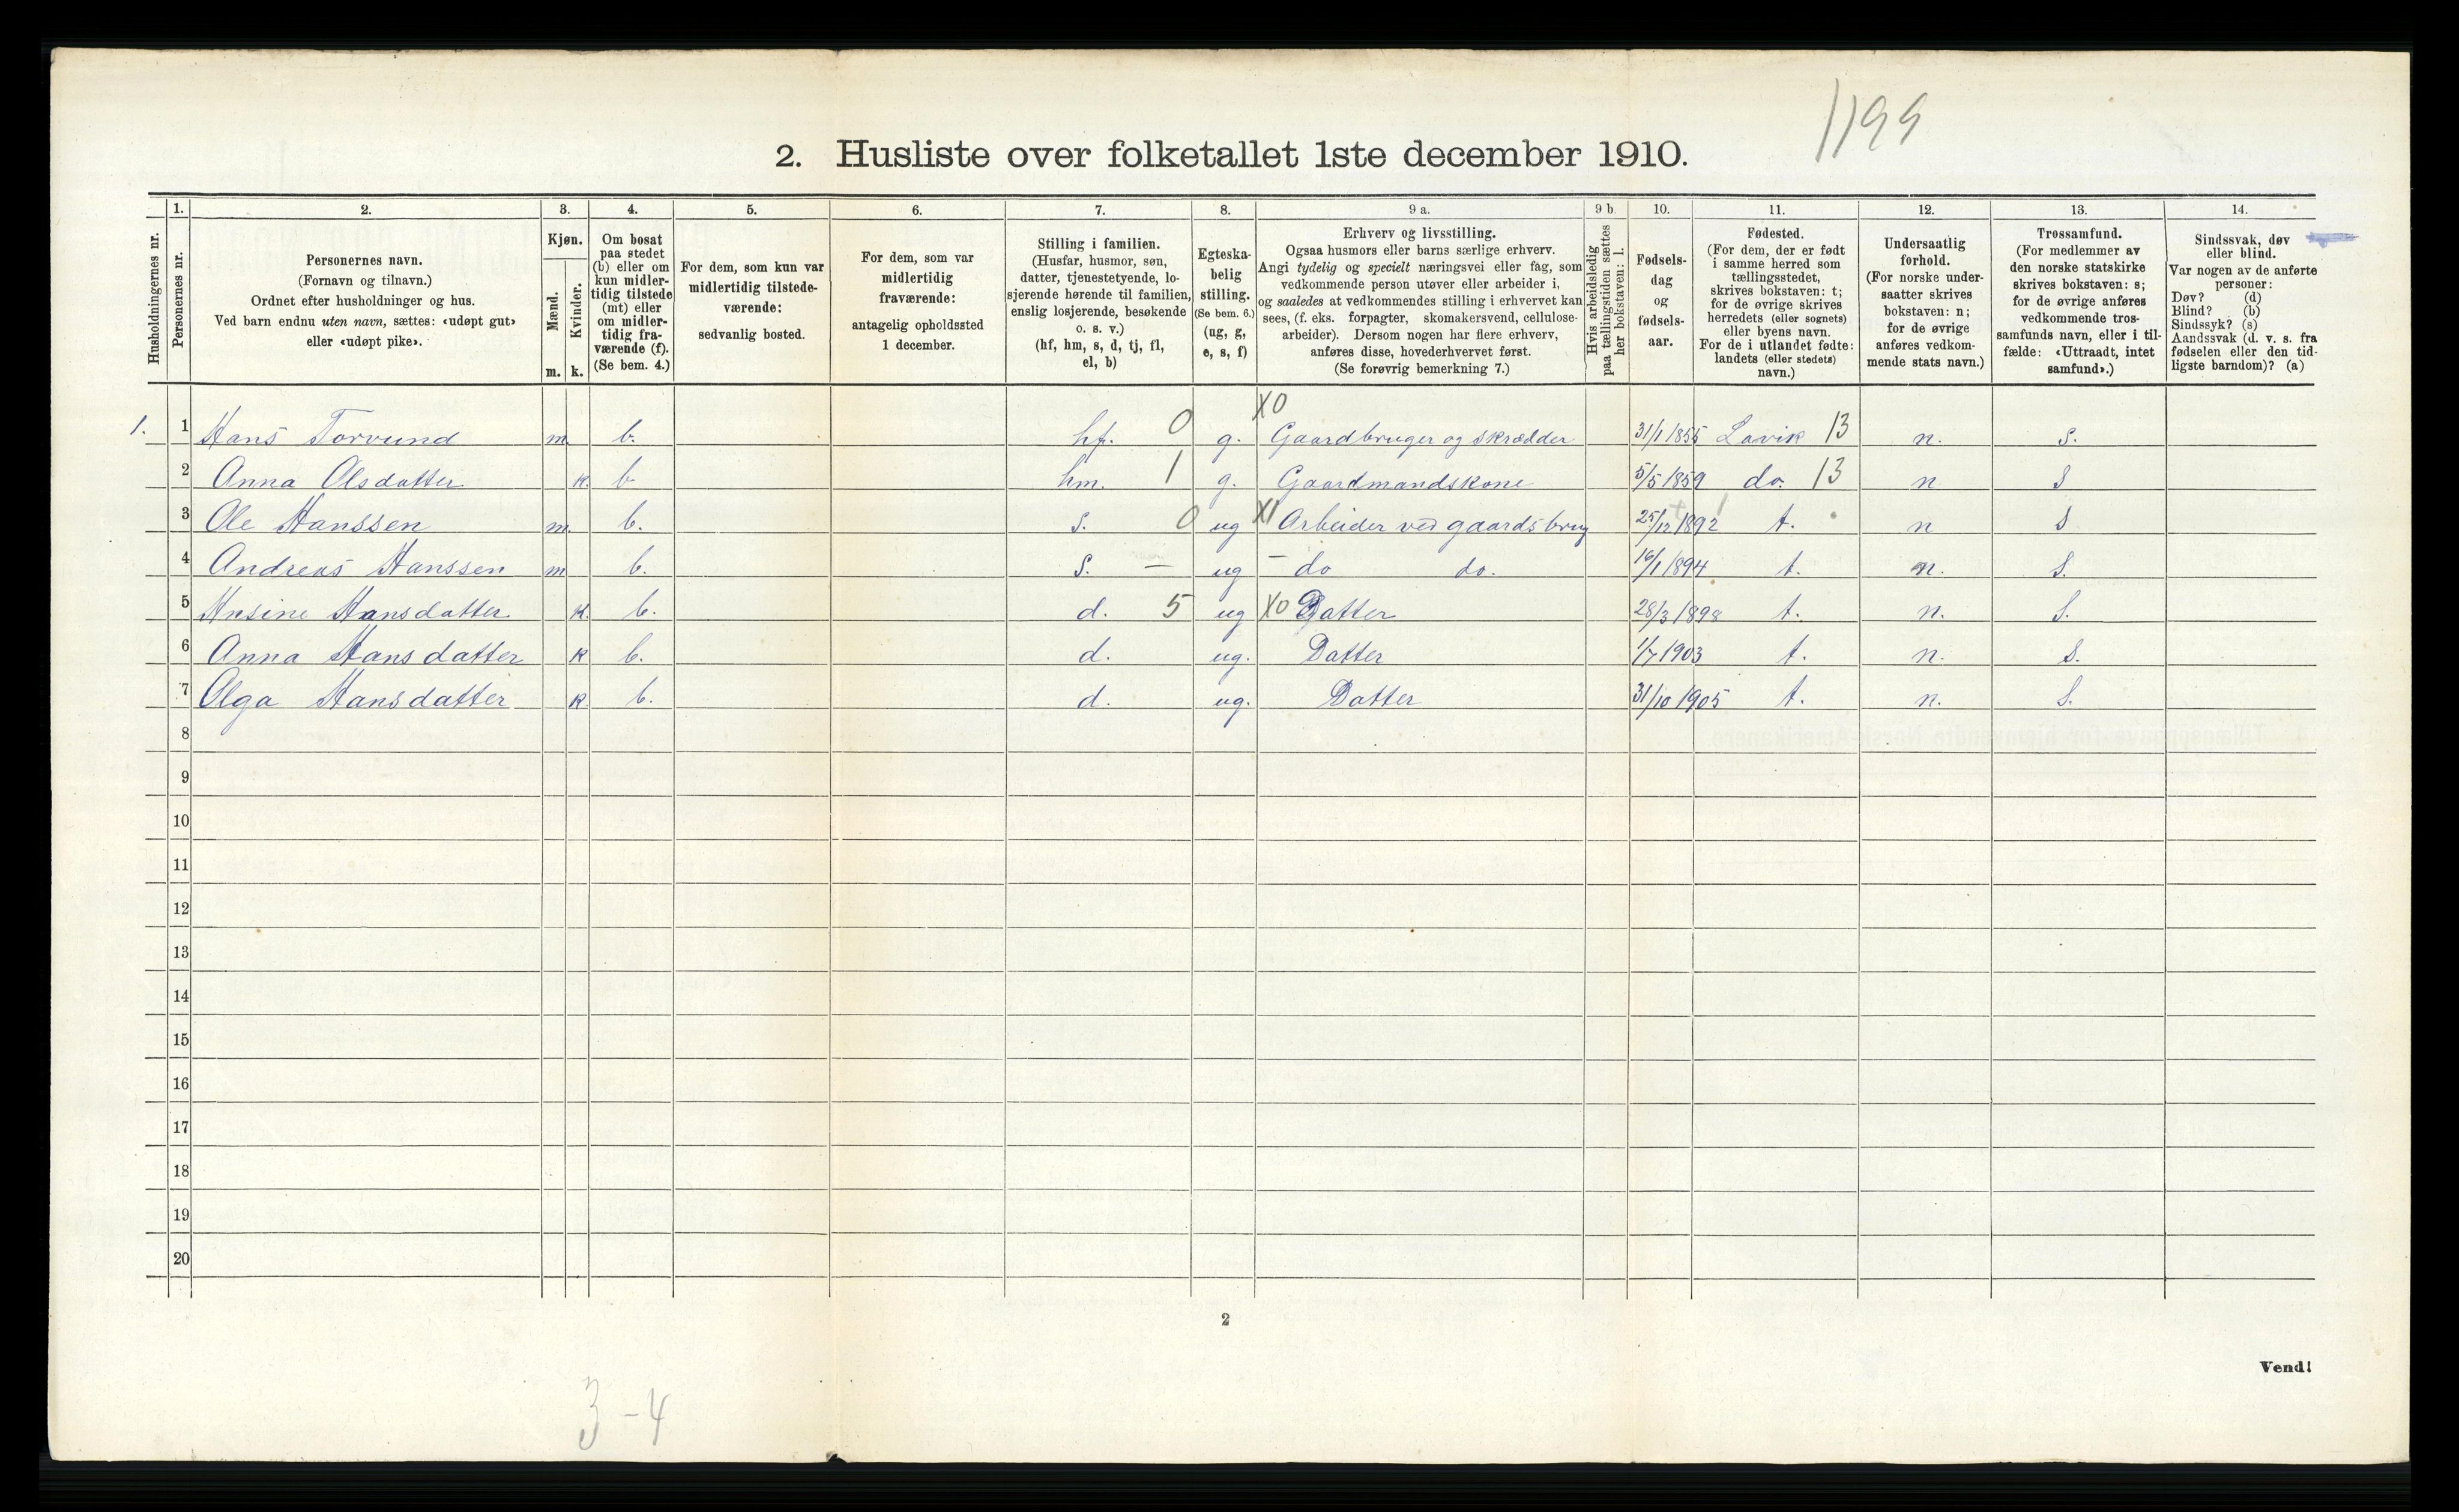 1199
2. Husliste over folketallet 1ste december 1910.
Husholdningernes nr.
1.
Personernes nr.
2.
Personernes navn.
(Fornavn og tilnavn.)
Ordnet efter husholdninger og hus.
Ved barn endnu uten navn, sættes: «udøpt gut»
eller «udøpt pike».
3.
Kjøn.
Mænd.
Kvinder.
m. k.
4.
Om bosat
paa stedet
(b) eller om
kun midler-
tidig tilstede
(mt) eller
om midler-
tidig fra-
værende (f).
(Se bem. 4.)
5.
For dem, som kun var
midlertidig tilstede-
værende:
sedvanlig bosted.
6.
For dem, som var
midlertidig
fraværende:
antagelig opholdssted
1 december.
7.
Stilling i familien.
(Husfar, husmor, søn,
datter, tjenestetyende, lo-
sjerende hørende til familien,
enslig losjerende, besøkende
o. s. v.)
(hf, hm, s, d, tj, fl,
el, b)
8.
Egteska-
belig
stilling.
(Se bem. 6.)
(ug, g,
e, s, f)
9 a.
Erhverv og livsstilling.
Ogsaa husmors eller barns særlige erhverv.
Angi tydelig og specielt næringsvei eller fag, som
vedkommende person utøver eller arbeider i,
og saaledes at vedkommendes stilling i erhvervet kan
sees, (f. eks. forpagter, skomakersvend, cellulose-
arbeider). Dersom nogen har flere erhverv,
anføres disse, hovederhvervet først.
(Se forøvrig bemerkning 7.)
9 b
Hvis arbeidsledig
paa tællingstiden sættes
her bokstaven: l.
10.
Fødsels-
dag
og
fødsels-
aar.
11.
Fødested.
(For dem, der er født
i samme herred som
tællingsstedet,
skrives bokstaven: t;
for de øvrige skrives
herredets (eller sognets)
eller byens navn.
For de i utlandet fødte:
landets (eller stedets)
navn.)
12.
Undersaatlig
forhold.
(For norske under-
saatter skrives
bokstaven: n;
for de øvrige
anføres vedkom-
mende stats navn.)
13.
Trossamfund.
(For medlemmer av
den norske statskirke
skrives bokstaven: s;
for de øvrige anføres
vedkommende tros-
samfunds navn, eller i til-
fælde: «Uttraadt, intet
samfund».)
14.
Sindssvak, døv
eller blind.
Var nogen av de anførte
personer:
Døv? (d)
Blind? (b)
Sindssyk? (s)
Aandssvak (d. v. s. fra
fødselen eller den tid-
ligste barndom)? (a)
1. 1 Hans Torvund m. b. hf. 0 g. X0 Gaardbruger og skrædder 31/1 1855 Lavik 13 n. s.
2 Anna Olsdatter k. b hm. 1 g. Gaardmandskone 5/5 1859 do. 13 n s
3 Ole Hanssen m. b. s. 0 ug X1 Arbeider ved gaardsbrug 25/12 1892 t. n s
4 Andreas Hanssen m b. s. – ug – do do. 16/1 1894 t. n. s.
5 Hansdatter k. b. d. 5 ug X0 Datter 28/3 1898 t. n. s.
6 Anna Hansdatter k b. d. ug. Datter 1/7 1903 t. n. s.
7 Olga Hansdatter k b. d. ug. Datter 31/10 1905 t. n. s.
8
9
10
11
12
13
14
15
16
17
18
19
20
2
Vend!
3-4